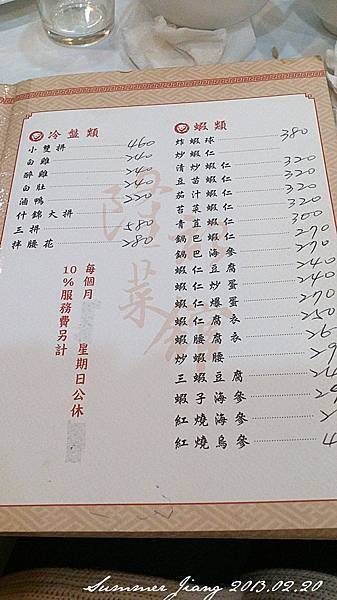 冷盤類
小雙拼 460
白雞 240
醉雞 240
白肚 240
滷鴨 220
什錦大拼
三拼 580
拌腰花 280
每個月 星期日公休
10%服務費另計
蝦類
炸蝦球 380
炒蝦仁
清炒蝦仁 320
豆苗蝦仁 320
茄汁蝦仁 320
苔菜蝦仁 320
青荳蝦仁 300
鍋巴蝦仁 270
鍋巴海參 270
蝦仁豆腐 240
蝦仁炒蛋 240
蝦仁爆蛋 270
蝦仁腐衣 250
蝦腰腐衣
炒蝦腰
三蝦豆腐
蝦子海參
紅燒海參
紅燒烏參
Summer Jiang 2013.02.20